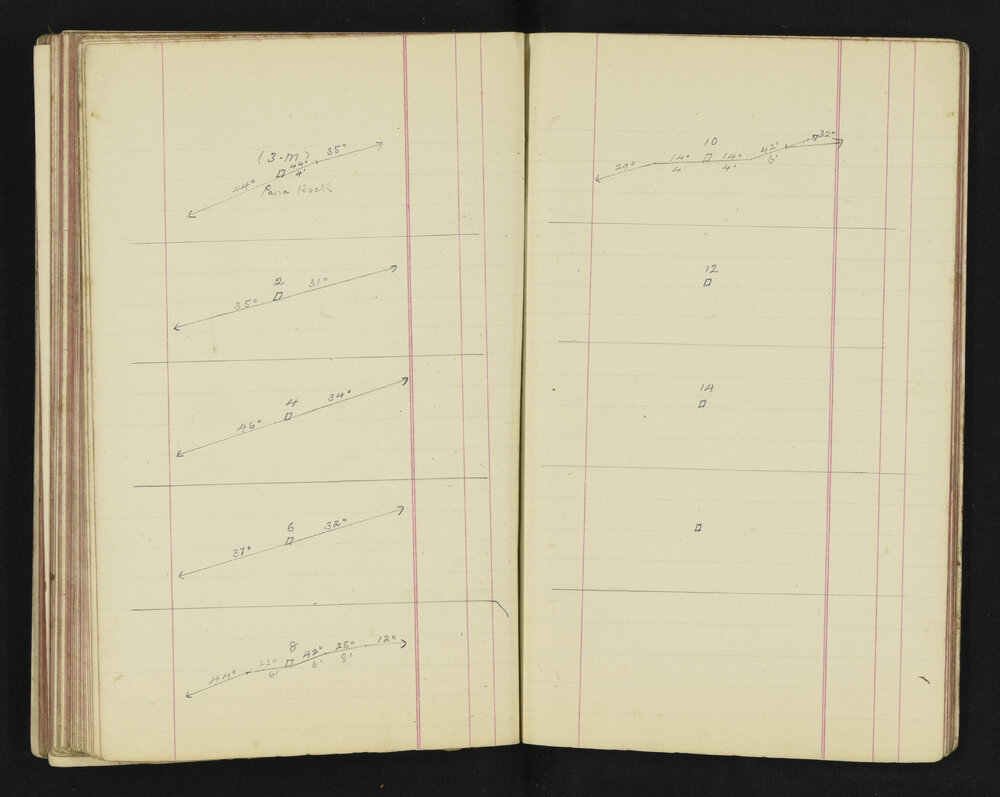 (3-m)
35°
44°
4'
44°
Papa Rock
2
31°
35°
4
34°
46°
6
32°
37°
8
42° 28° 12°
44° 22°
6' 6' 8'
10
32°
29° 14° 14° 42°
4' 4' 6'
12
14